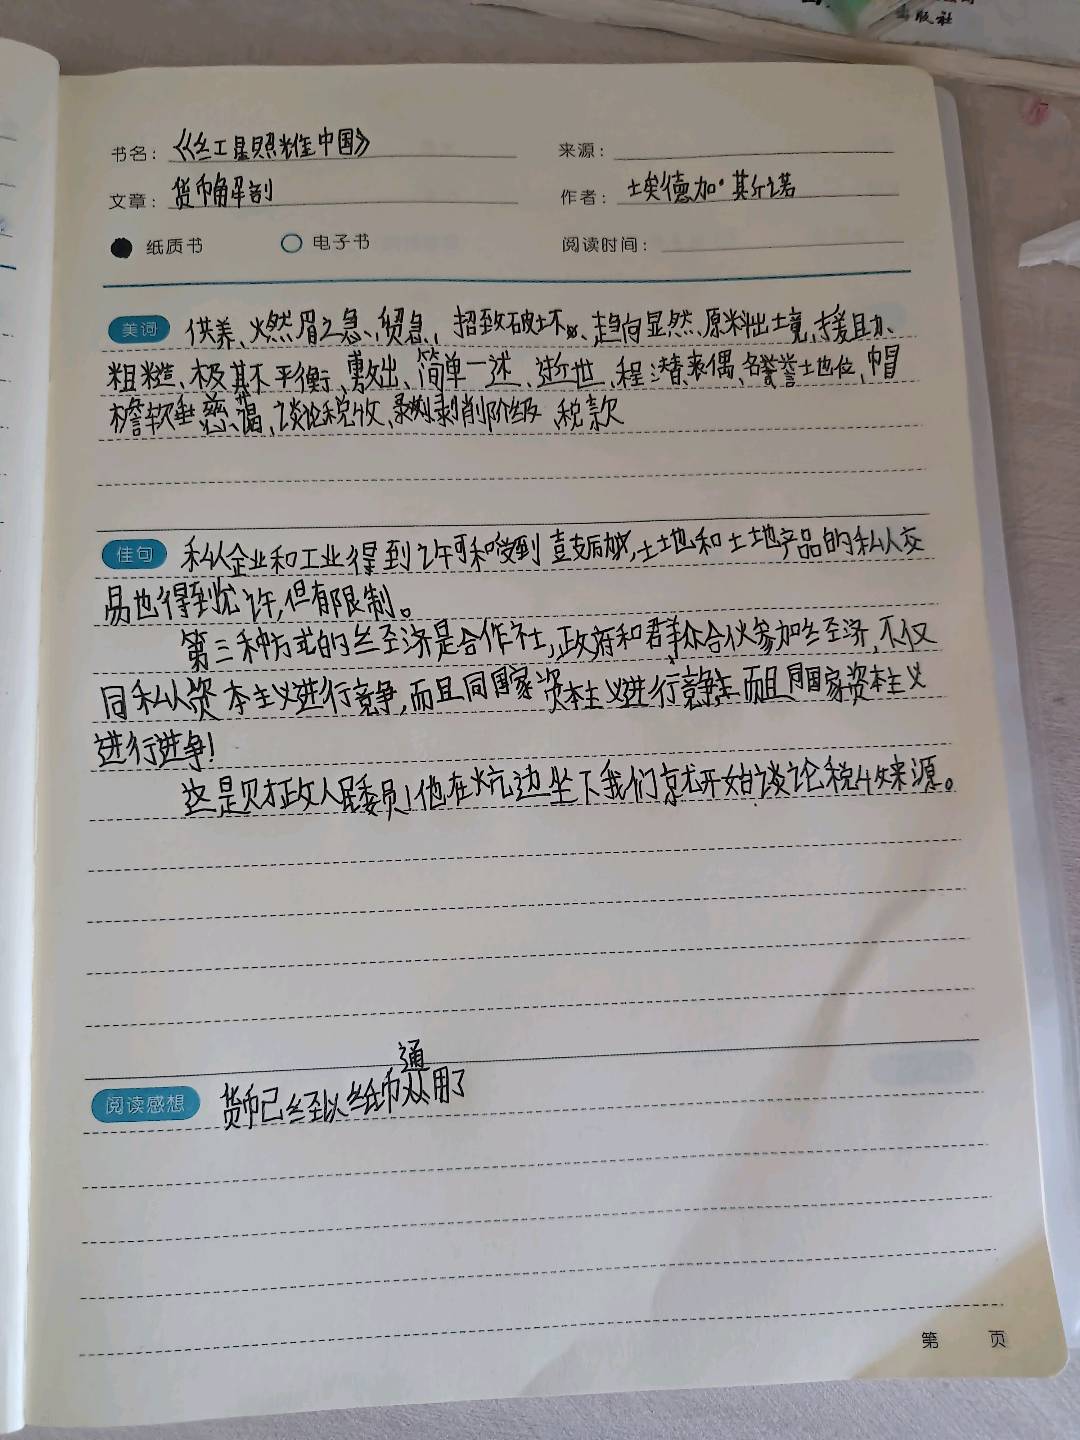 出版社
书名：《红星照耀中国》 来源：
文章：货币解剖 作者：埃德加·斯诺
纸质书 电子书 阅读时间：
美词 供养、燃眉之急、贸急、招致破坏、趋向显然、原料出境、援助、
粗糙、极其不平衡、敷出、简单一述、逝世、程潜表偶、名誉地位、帽
檐软垂慈蔼、谈论税收、剥削阶级、税款
佳句 私人企业和工业得到许可和受到鼓励,土地和土地产品的私人交
易也得到允许,但有限制。
第三种方式的经济是合作社,政府和群众合伙参加经济,不仅
同私人资本主义进行竞争,而且同国家资本主义进行竞争,而且同国家资本主义
进行进争!
这是财政人民委员!他在炕边坐下我们就开始谈论税收来源。
通
阅读感想 货币已经以纸币用了
第 页